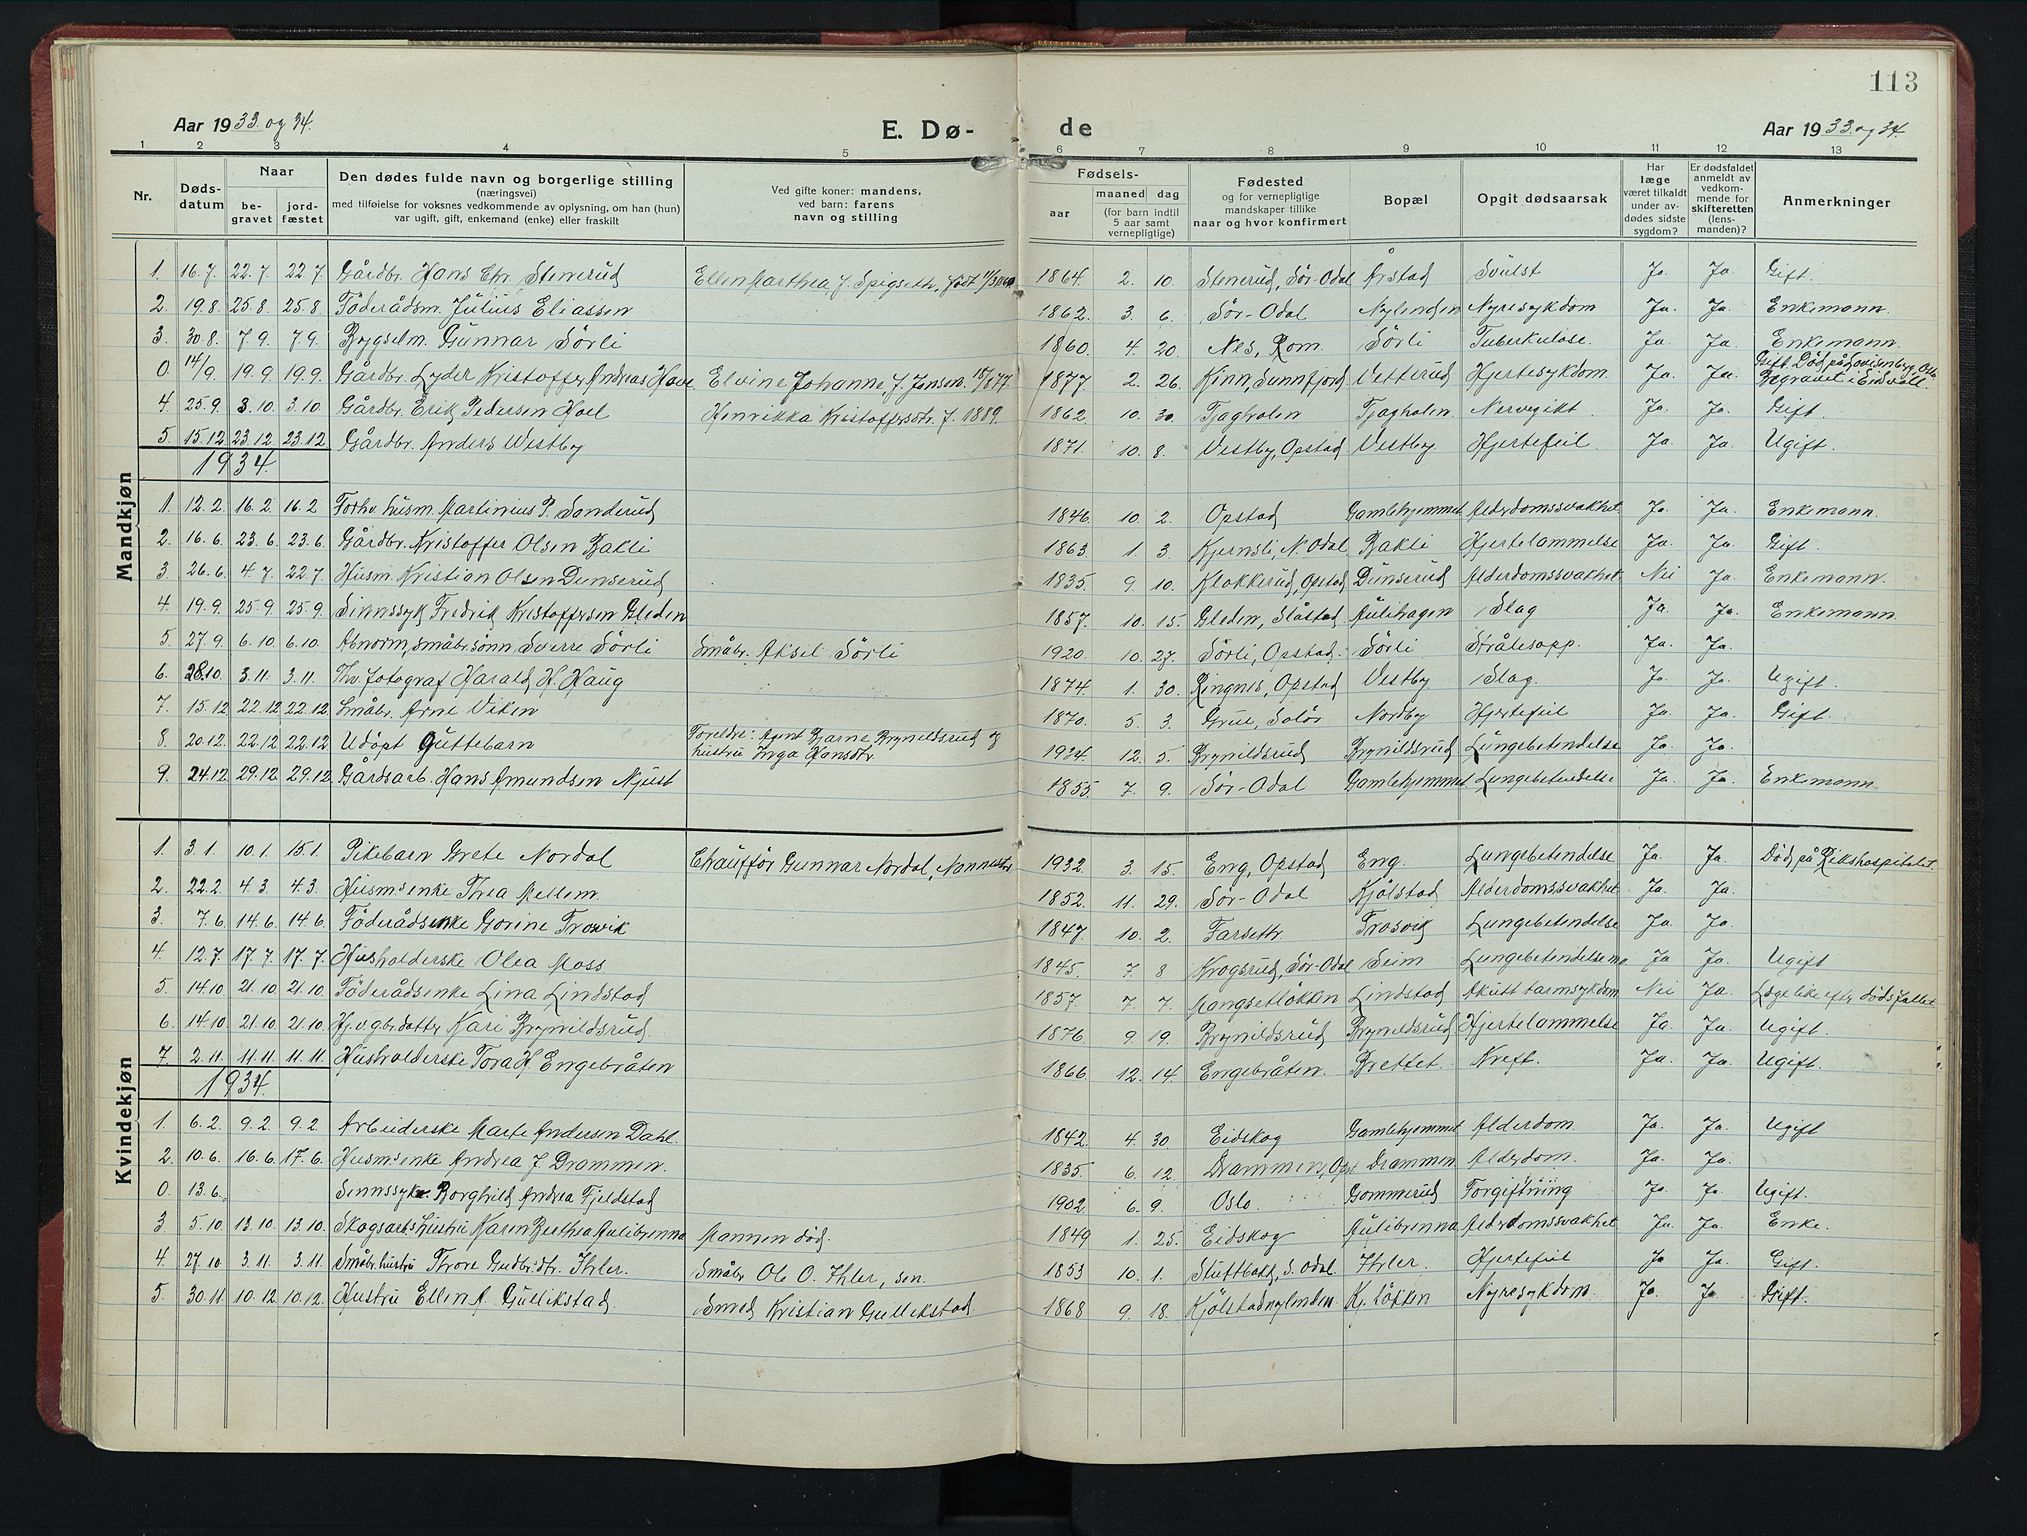 113
Aar 1933 og 34.
E. Dø-
de
Aar 1933 og 34.
1 2 3 4 5 6 7 8 9 10 11 12 13
Nr.
Døds-
datum
Naar
be-
gravet
jord-
fæstet
Den dødes fulde navn og borgerlige stilling
(næringsvei)
med tilføielse for voksnes vedkommende av oplysning, om han (hun)
var ugift, gift, enkemand (enke) eller fraskilt
Ved gifte koner: mandens,
ved barn: farens
navn og stilling
Fødsels-
aar
maaned
dag
(for barn indtil
5 aar samt
vernepligtige)
Fødested
og for vernepligtige
mandskaper tillike
naar og hvor konfirmert
Bopæl
Opgit dødsaarsak
Har
læge
været tilkaldt
under av-
dødes sidste
sygdom?
Er dødsfaldet
anmeldt av
vedkom-
mende for
skifteretten
(lens-
manden)?
Anmerkninger
Mandkjøn
1. 16.7. 22.7. 22.7. Gårdbr. Hans Chr. Stenerud Ellen Marthea J. Spigseth, født 1864. 2. 10. Stenerud, Sør-Odal Årstad Svulst Ja. Ja. Gift.
2. 19.8. 25.8. 25.8. Föderådsm. Julius Eliassen 1862. 3. 6. Sør-Odal Nylenden Nyresykdom Ja. Ja. Enkemann.
3. 30.8. 7.9. 7.9. Bygselm. Gunnar Sörli 1860. 4. 20. Nes, Rom. Sörli Tuberkulose. Ja. Ja. Enkemann.
0 14/9. 19.9. 19.9. Gårdbr. Lyder Kristoffer Andreas Hove Elvine Johanne J. Jensen 15/8 77. 1877. 2. 26. Kinn, Sunnfjord Vetterud Hjertesykdom Ja. Ja. Gift. Død på Lovisenberg, Oslo
Begravet i Eidsvoll.
4. 25.9. 3.10. 3.10. Gårdbr. Erik Pedersen Hoel Henrikka Kristoffersdtr. f. 1889. 1862. 10. 30. Tjagholen Tjagholen Nervegikt. Ja. Ja. Gift.
5. 15.12. 23.12. 23.12. Gårdbr. Anders Westby 1871. 10. 8. Vestby, Opstad Vestby. Hjertefeil. Ja. Ja. Ugift.
1934.
1. 12.2. 16.2. 16.2. Forhv. husm. Martinius P. Sonderud 1846. 10. 2. Opstad Gamlehjemmet Alderdomssvakhet. Ja. Ja. Enkemann.
2. 16.6. 23.6. 23.6. Gårdbr. Kristoffer Olsen Bakli 1863. 1. 3. Kjernsli, N. Odal Bakli Hjertelammelse Ja. Ja. Gift.
3. 26.6. 4.7. 22.7. Husm. Kristian Olsen Dunserud 1835. 9. 10. Klokkerud, Opstad Dunserud Alderdomssvakhet. Nei Ja. Enkemann.
4. 19.9. 25.9. 25.9. Sinnssyk Fredrik Kristoffersen Gleden 1857. 10. 15. Gleden, Slåstad Aulihagen Slag Ja. Ja. Enkemann.
5. 27.9. 6.10. 6.10. Abnorm, småbr.sønn Sverre Sörli Småbr. Aksel Sörli 1920. 10. 27. Sörli, Opstad. Sörli Strålesopp. Ja. Ja.
6. 28.10. 3.11. 3.11. Fhv. fotograf Harald H. Haug 1874. 1. 30. Ringnes, Opstad Vestby Slag. Ja. Ja. Ugift.
7. 15.12. 22.12. 22.12. Småbr. Arne Viken 1870. 5. 3. Grue, Solör Nordby Hjertefeil Ja. Ja. Gift.
8. 20.12. 22.12. 22.12. Udöpt Guttebarn Foreldre: Agent Bjarne Brynildsrud og
hustru Inga Hansdtr. 1934. 12. 5. Brynildsrud Brynildsrud Lungebetendelse Ja. Ja.
9. 24.12. 29.12. 29.12. Gårdsarb. Hans Amundsen Njust 1855. 7. 9. Sör-Odal Gamlehjemmet Lungebetendelse Ja. Ja. Enkemann.
Kvindekjøn
1. 3.1. 10.1. 15.1. Pikebarn Grete Nordal Chauffør Gunnar Nordal, 1932. 3. 15. Eng, Opstad Eng. Lungebetendelse Ja. Ja. Död på Rikshospitalet.
2. 22.2. 4.3. 4.3. Husmsenke Thea Mellem. 1852. 11. 29. Sør-Odal Kjölstad Alderdomssvakhet Ja. Ja.
3. 7.6. 14.6. 14.6. Föderådsenke Gorine Trosvik 1847. 10. 2. Farseth Trosvik Lungebetendelse Ja. Ja.
4. 12.7. 17.7. 17.7. Husholderske Olea Moss 1845. 7. 8 Krogsrud, Sör-Odal Seim Lungebetendelse Ja Ja. Ugift
5. 14.10 21.10. 21.10. Föderådsenke Lina Lindstad 1857. 7. 7. Mangsetlökken Lindstad Akutt tarmsykdom Nei Ja. Læge like efter dödsfallet
6. 14.10. 21.10. 21.10. Hj.v. gbr.datter Kari Brynildsrud. 1876 9 19. Brynildsrud Brynildsrud Hjertelammelse Ja. Ja. Ugift.
7 2.11. 11.11. 11.11. Husholderske Tora H. Engebråten 1866. 12. 14. Engebråten. Brettet. Kreft. Ja. Ja. Ugift.
1934.
1. 6.2. 9.2. 9.2. Arbeiderske Marte Andersen Dahl. 1842. 4. 30. Eidskog Gamlehjemmet Alderdom. Ja. Ja. Ugift
2. 10.6. 16.6. 17.6. Husmsenke Andrea J. Drammen. 1835. 6. 12. Drammen, Ops. Drammen Alderdom. Ja. Ja.
0. 13.6. Sinnssyke Borghild Andrea Fjeldstad 1902 6. 9. Oslo Gommerud Forgiftning Ja. Ja. Ugift.
3 5.10. 13.10. 13.10. Skogsarb.s hustru Karen Berthea Aulibrenna Mannen död. 1849 1. 25. Eidskog Aulibrenna Alderdomssvakhet Ja. Ja. Enke.
4. 27.10. 3.11. 3.11. Småbr.hustru Thore Gudbr.dtr. Ihler. Småbr. Ole O. Ihler, sen. 1853 10. 1. Sluttbakk, S. Odal. Ihler. Hjertefeil Ja Ja. Gift.
5. 30.11. 10.12. 10.12. Hustru Ellen A. Gullikstad Smed Kristian Gullikstad 1868 9. 18. Kjölstadnylenden Kj. lökken Nyresykdom. Ja. Ja Gift.